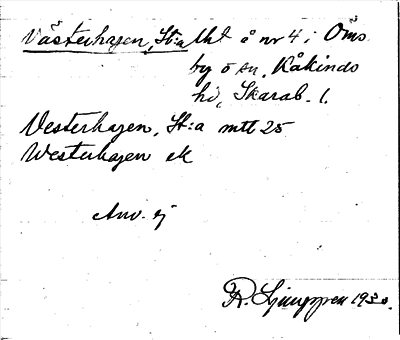 Västerhagen, St:a Uht å nr 4 i Öms
by o sn, Kåkinds
hd, Skarab. l.
Vesterhagen, St:a mtl 25
Westerhagen ek
Anv. ej
R. Ljunggren 1930.